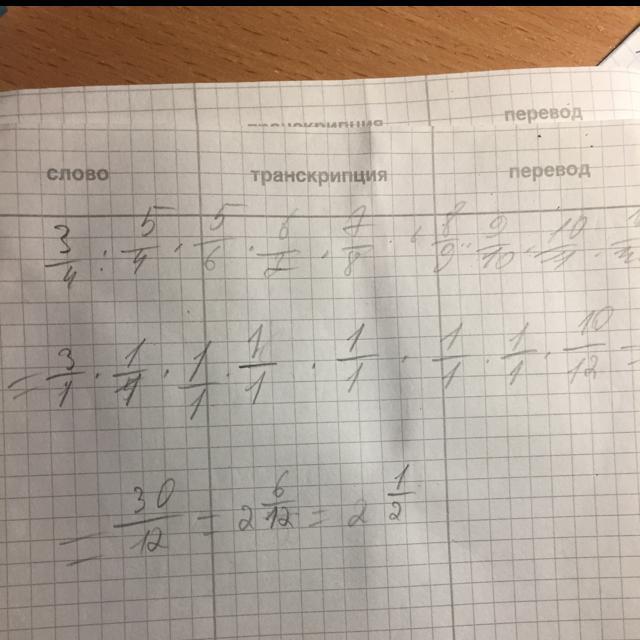 перевод
слово транскрипция перевод
3/4 : 5/4 · 5/6 · 6/7 · 7/8 · 8/9 · 9/10 · 10/11 ·
= 3/1 · 1/1 · 1/1 · 1/1 · 1/1 · 1/1 · 1/1 · 10/12 =
= 30/12 = 2 6/12 = 2 1/2